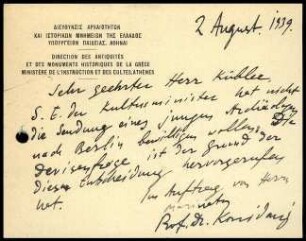 ΔΙΕΥΘΥΝΣΙΣ ΑΡΧΑΙΟΤΗΤΩΝ
ΚΑΙ ΙΣΤΟΡΙΚΩΝ ΜΝΗΜΕΙΩΝ ΤΗΣ ΕΛΛΑΔΟΣ
ΥΠΟΥΡΓΕΙΟΝ ΠΑΙΔΕΙΑΣ, ΑΘΗΝΑΙ
DIRECTION DES ANTIQUITÉS
ET DES MONUMENTS HISTORIQUES DE LA GRÈCE
MINISTÈRE DE L'INSTRUCTION ET DES CULTES, ATHÈNES
2 August. 1939.
Sehr geehrter Herr
S. E. der Kultusminister hat nicht
die Sendung eines jungen Archäologen
nach Berlin bewilligen wollen. Die
Devisenfrage ist der Grund der
diese Entscheidung hervorgerufen
hat.
Im Auftrag von Herrn
Marinatos
Prof. Dr.